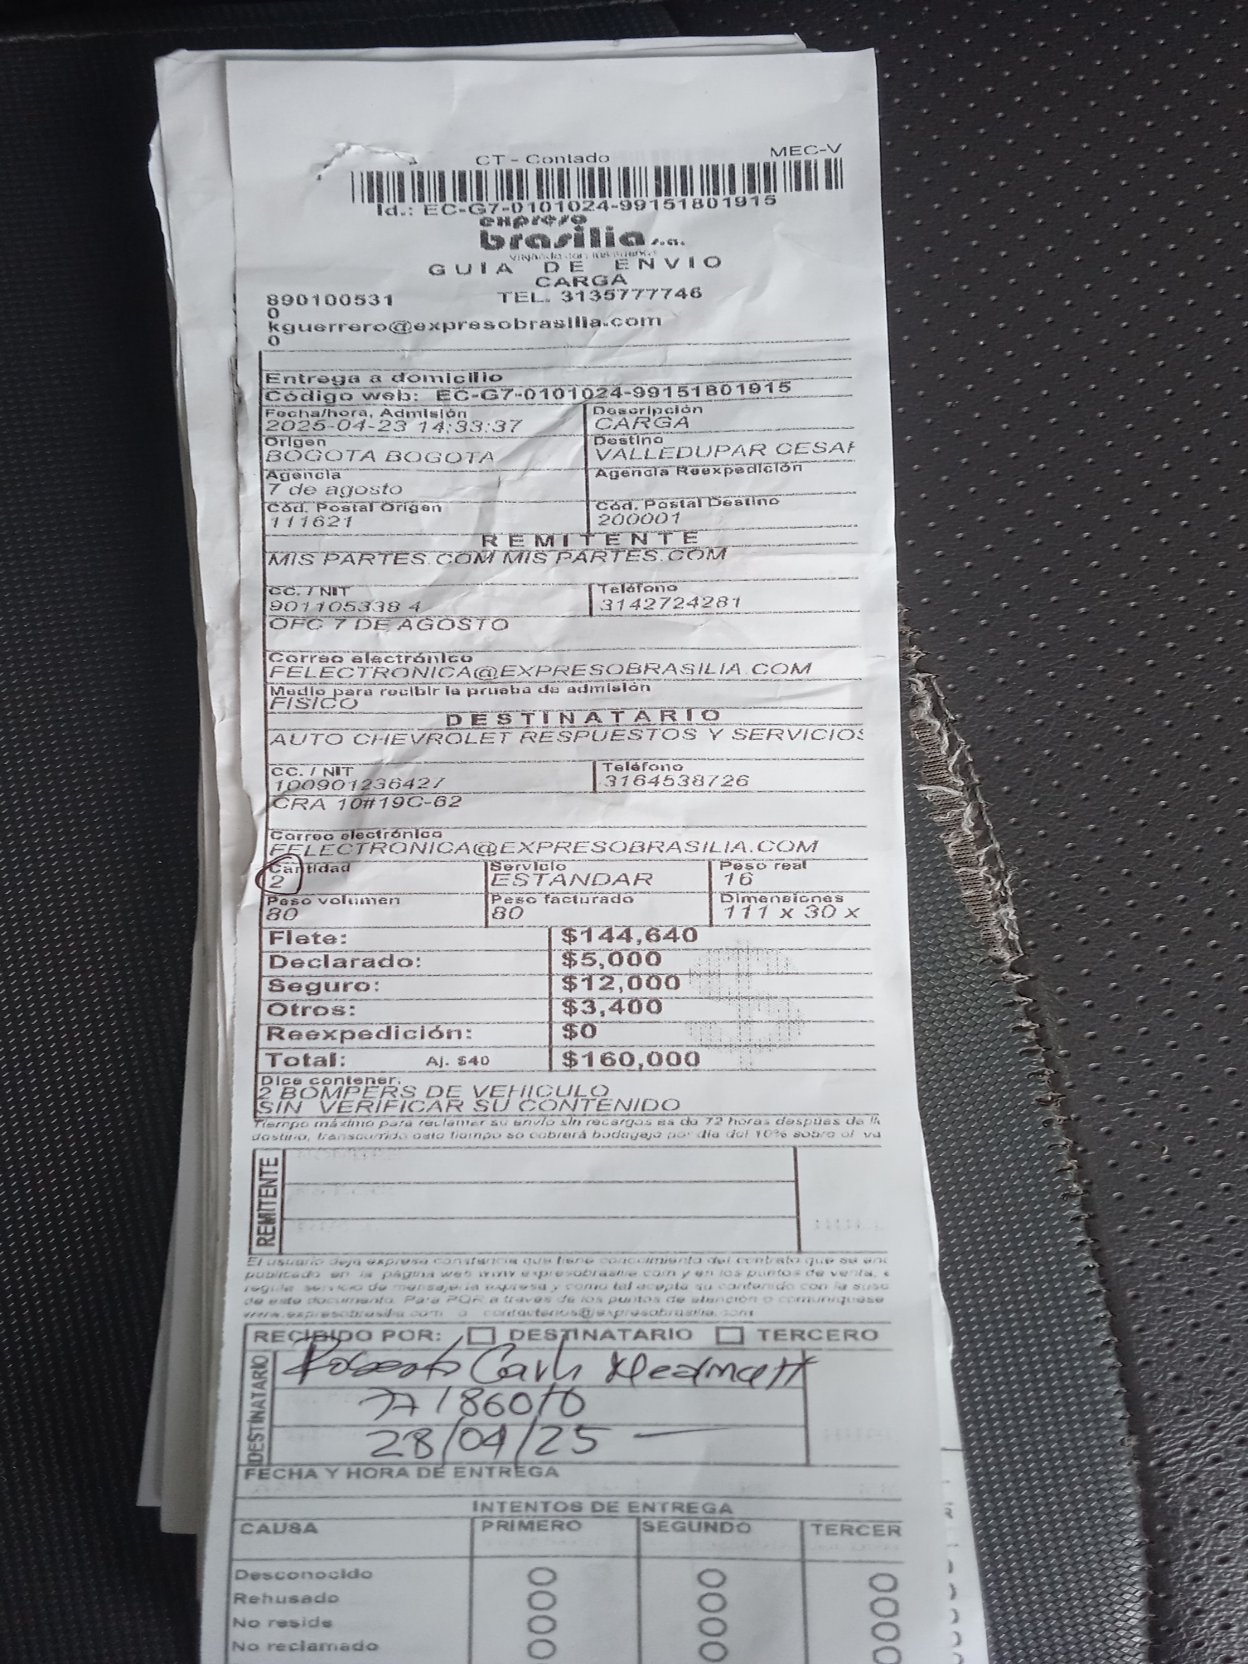 CT - Contado MEC-V
Id.: EC-G7-0101024-99151801915
expreso
brasilia s.a.
GUIA DE ENVIO
CARGA
890100531 TEL. 3135777746
0
kguerrero@expresobrasilia.com
0
Entrega a domicilio
Código web: EC-G7-0101024-99151801915
Fecha/hora, Admisión Descripción
2025-04-23 14:33:37 CARGA
Origen Destino
BOGOTA BOGOTA VALLEDUPAR CESAR
Agencia Agencia Reexpedición
7 de agosto
Cód. Postal Origen Cód. Postal Destino
111621 200001
REMITENTE
MIS PARTES.COM MIS PARTES.COM
CC. / NIT Teléfono
901105338 4 3142724281
OFC 7 DE AGOSTO
Correo electrónico
FELECTRONICA@EXPRESOBRASILIA.COM
Medio para recibir la prueba de admisión
FISICO
DESTINATARIO
AUTO CHEVROLET RESPUESTOS Y SERVICIOS
CC. / NIT Teléfono
100901236427 3164538726
CRA 10#19C-62
Correo electrónico
FELECTRONICA@EXPRESOBRASILIA.COM
Cantidad Servicio Peso real
2 ESTANDAR 16
Peso volumen Peso facturado Dimensiones
80 80 111 x 30 x
Flete: $144,640
Declarado: $5,000
Seguro: $12,000
Otros: $3,400
Reexpedición: $0
Total: Aj. $40 $160,000
Dice contener:
2 BOMPERS DE VEHICULO
SIN VERIFICAR SU CONTENIDO
Tiempo máximo para reclamar su envío sin recargos es de 72 horas después de
destino, transcurrido este tiempo se cobrará bodegaje por día del 10% sobre el
REMITENTE
El usuario deja expresa constancia que tiene conocimiento del contrato que se
publicado en la página web www.expresobrasilia.com y en los puntos de venta,
regula servicio de mensajería expresa y como tal acepta su contenido con la
de este documento. Para PQR a través de los puntos de atención o comuníquese
www.expresobrasilia.com o contactenos@expresobrasilia.com
RECIBIDO POR: DESTINATARIO TERCERO
DESTINATARIO
Roberto
28/04/25
FECHA Y HORA DE ENTREGA
INTENTOS DE ENTREGA
CAUSA PRIMERO SEGUNDO TERCER
Desconocido
Rehusado
No reside
No reclamado